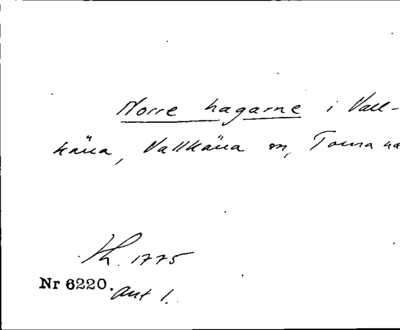 Norre hagarne i Vall-
kärra, Vallkärra sn, Torna hd
Kh. 1775
Nr 6220. Akt 1.